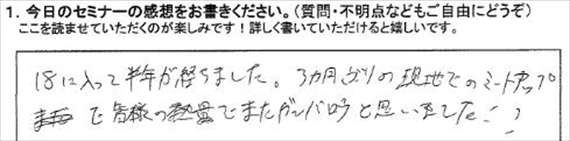 1. 今日のセミナーの感想をお書きください。（質問・不明点などもご自由にどうぞ）
ここを読ませていただくのが楽しみです！詳しく書いていただけると嬉しいです。
18に入って半年が経ちました。3ヵ月ぶりの現地でのミートアップ
で皆様の熱量でまたガンバロウと思いました！